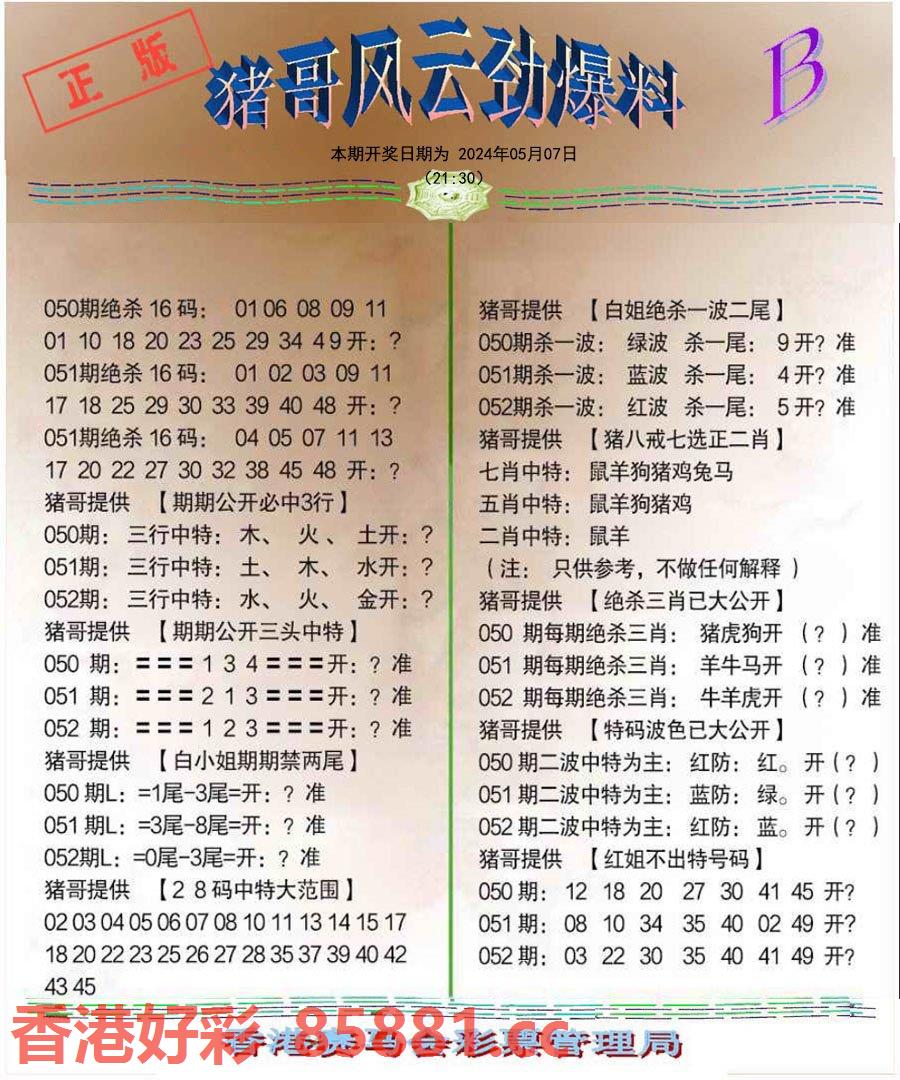 正版
猪哥风云劲爆料
B
本期开奖日期为 2024年05月07日
(21:30)
050期绝杀 16 码： 01 06 08 09 11
01 10 18 20 23 25 29 34 4 9 开：？
051期绝杀 16 码： 01 02 03 09 11
17 18 25 29 30 33 39 40 48 开：？
051期绝杀 16 码： 04 05 07 11 13
17 20 22 27 30 32 38 45 48 开：？
猪哥提供 【期期公开必中3行】
050期：三行中特：木、 火 、 土开：？
051期：三行中特：土、 木、 水开：？
052期：三行中特：水、 火、 金开：？
猪哥提供 【期期公开三头中特】
050 期：〓〓〓 1 3 4 〓〓〓开：？准
051 期：〓〓〓 2 1 3 〓〓〓开：？准
052 期：〓〓〓 1 2 3 〓〓〓开：？准
猪哥提供 【白小姐期期禁两尾】
050 期L：=1尾-3尾=开：？准
051 期L：=3尾-8尾=开：？准
052期L：=0尾-3尾=开：？准
猪哥提供 【2 8 码中特大范围】
02 03 04 05 06 07 08 10 11 13 14 15 17
18 20 22 23 25 26 27 28 35 37 39 40 42
43 45
猪哥提供 【白姐绝杀一波二尾】
050期杀一波： 绿波 杀一尾： 9 开？准
051期杀一波： 蓝波 杀一尾： 4 开？准
052期杀一波： 红波 杀一尾： 5 开？准
猪哥提供 【猪八戒七选正二肖】
七肖中特：鼠羊狗猪鸡兔马
五肖中特：鼠羊狗猪鸡
二肖中特：鼠羊
（注： 只供参考，不做任何解释 ）
猪哥提供 【绝杀三肖已大公开】
050 期每期绝杀三肖： 猪虎狗开 （？ ）准
051 期每期绝杀三肖： 羊牛马开 （？ ）准
052 期每期绝杀三肖： 牛羊虎开 （？ ）准
猪哥提供 【特码波色已大公开】
050 期二波中特为主：红防：红。开（？ ）
051 期二波中特为主：蓝防：绿。开（？ ）
052 期二波中特为主：红防：蓝。开（？ ）
猪哥提供 【红姐不出特号码】
050 期： 12 18 20 27 30 41 45 开？
051 期： 08 10 34 35 40 02 49 开？
052 期： 03 22 30 35 40 41 49 开？
香港好彩 85881.cc